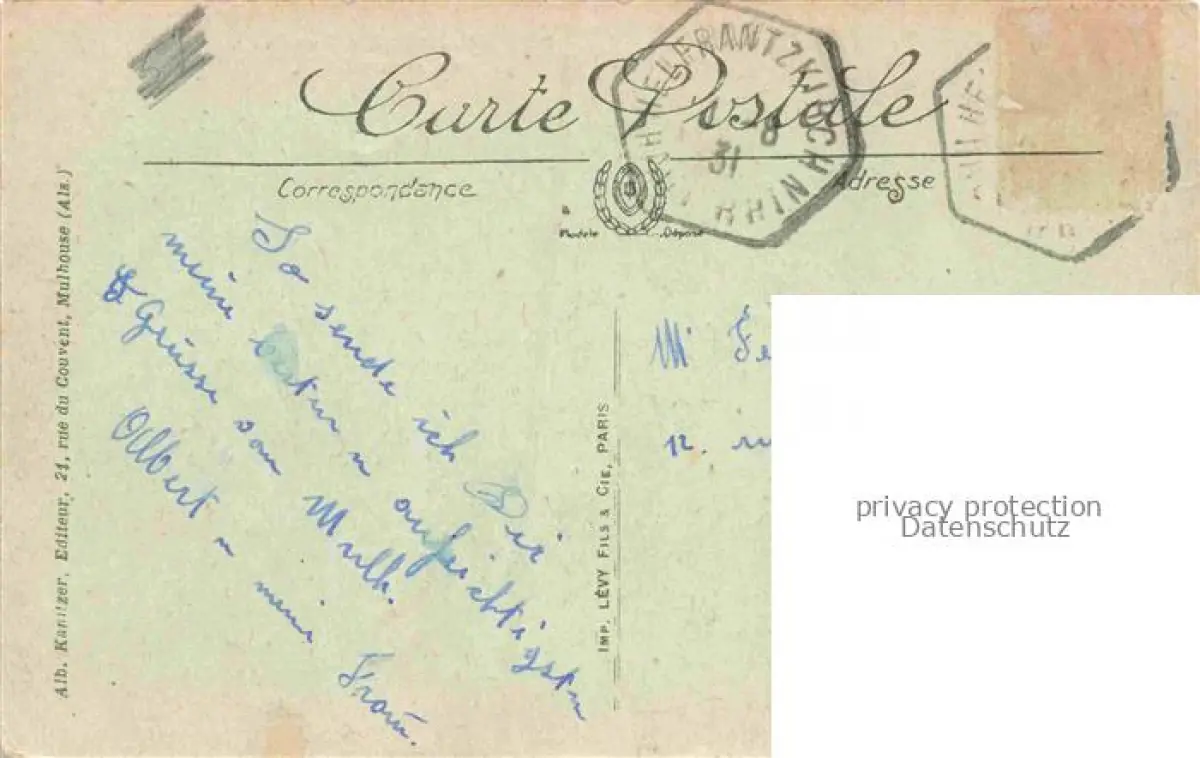 Carte Postale
Correspondance
Adresse
Modèle Déposé
HELFRANTZKIRCH
8
31
HT RHIN
Alb. Kanitzer, Editeur, 21, rue du Couvent, Mulhouse (Als.)
IMP. LÉVY FILS & CIE, PARIS
So sende ich Dir
meine besten u aufrichtigsten
Grüsse von Mulh.
Albert u meine Frau.
Mr
12.
privacy protection
Datenschutz